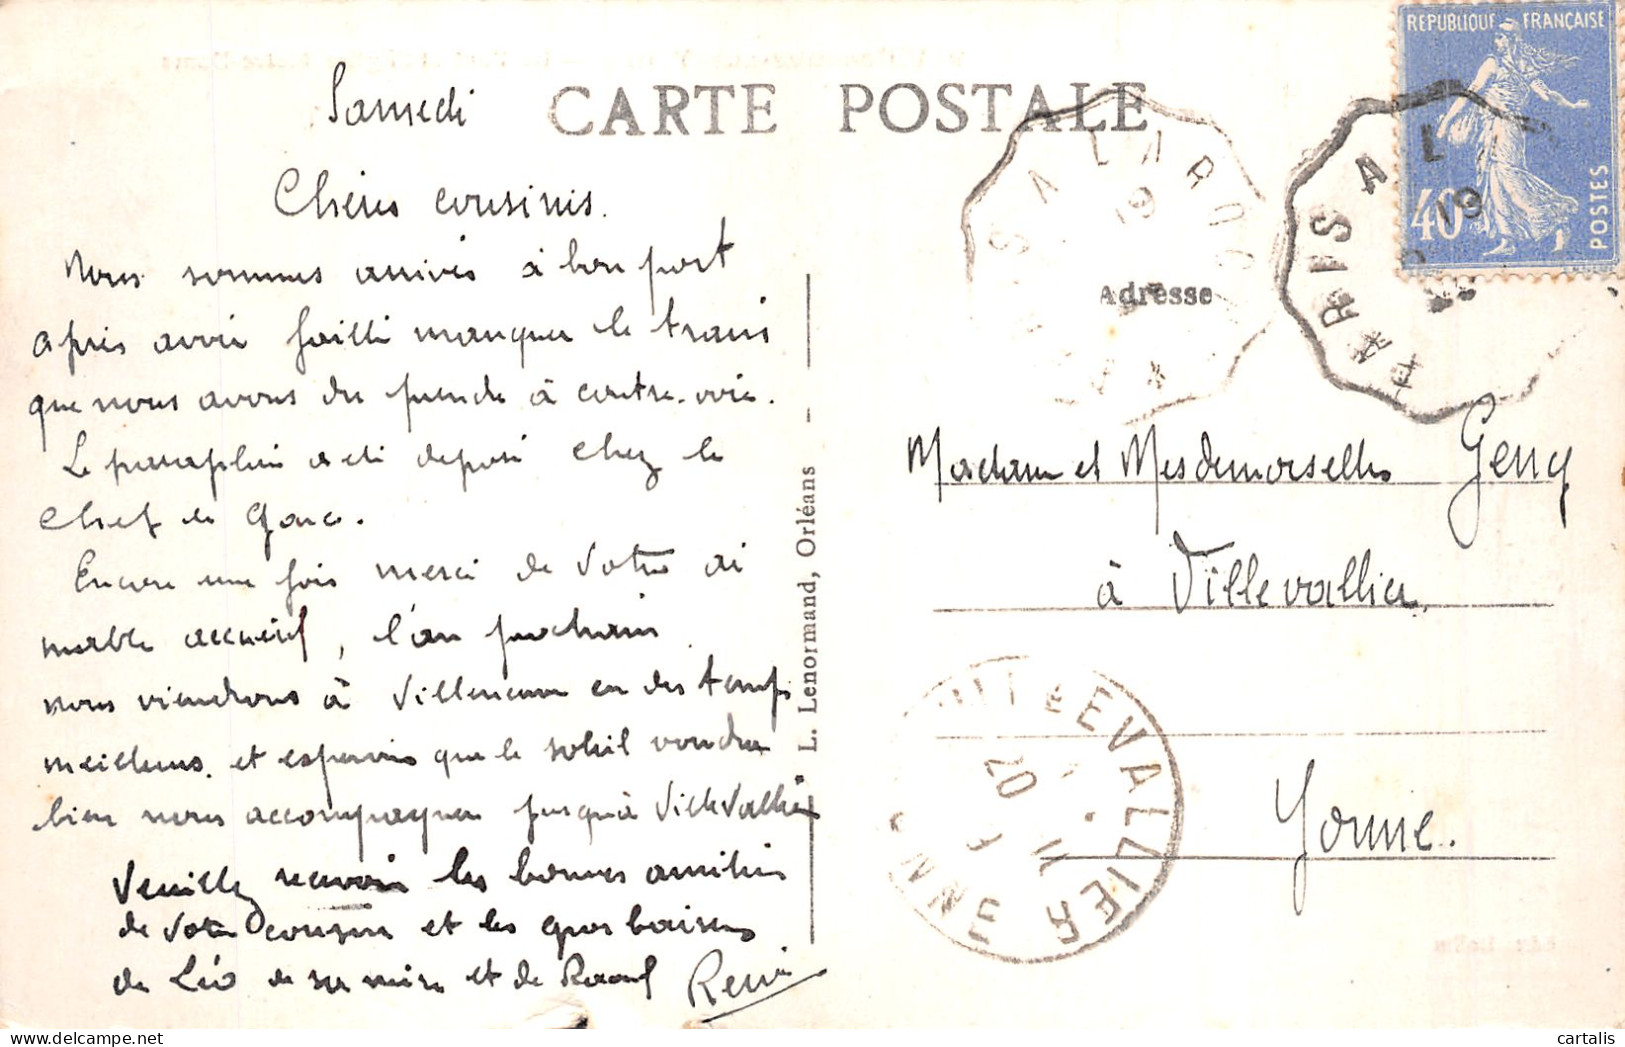 RÉPUBLIQUE FRANÇAISE
40c
POSTES
CARTE POSTALE
Samedi
Chères cousines.
Nous sommes arrivés à bon port
après avoir failli manquer le train
que nous avons du prendre à contre-voie.
Le parapluie a été déposé chez le
Chef de Gare.
Encore une fois merci de votre ai
mable accueil, l'an prochain
nous viendrons à Villeneuve en des temps
meilleurs. et espérons que le soleil voudra
bien nous accompagner jusqu'à Villevallier
Veuillez recevoir les bonnes amitiés
de votre cousine et les gros baisers
de Léo de sa mère et de Raoul René
L. Lenormand, Orléans
PARIS A LAROCHE
19
PARIS A L
19
Adresse
Madame et Mesdemoiselles Geny
à Villevallier
Yonne.
VILLEVALLIER
YONNE
20
11
cartalis